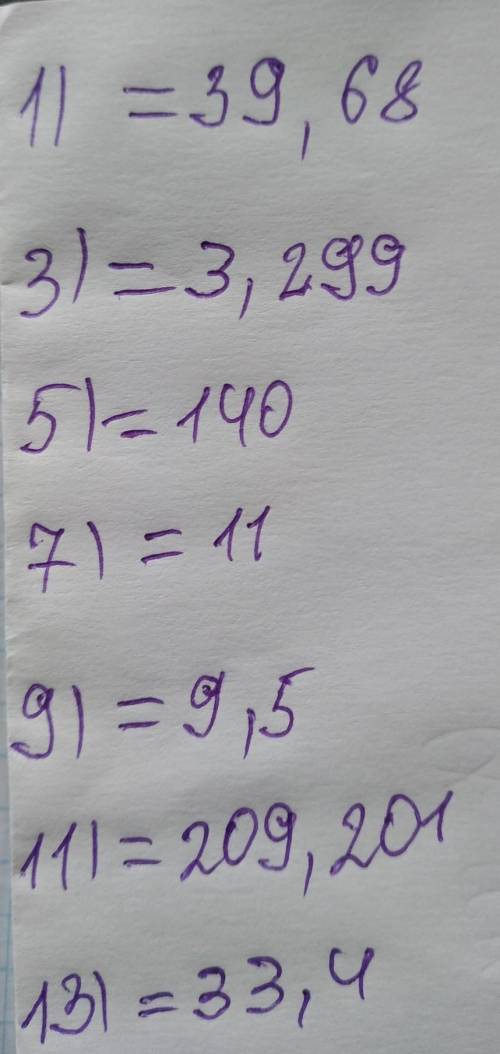 1) = 39,68
3) = 3,299
5) = 140
7) = 11
9) = 9,5
11) = 209,201
13) = 33,4